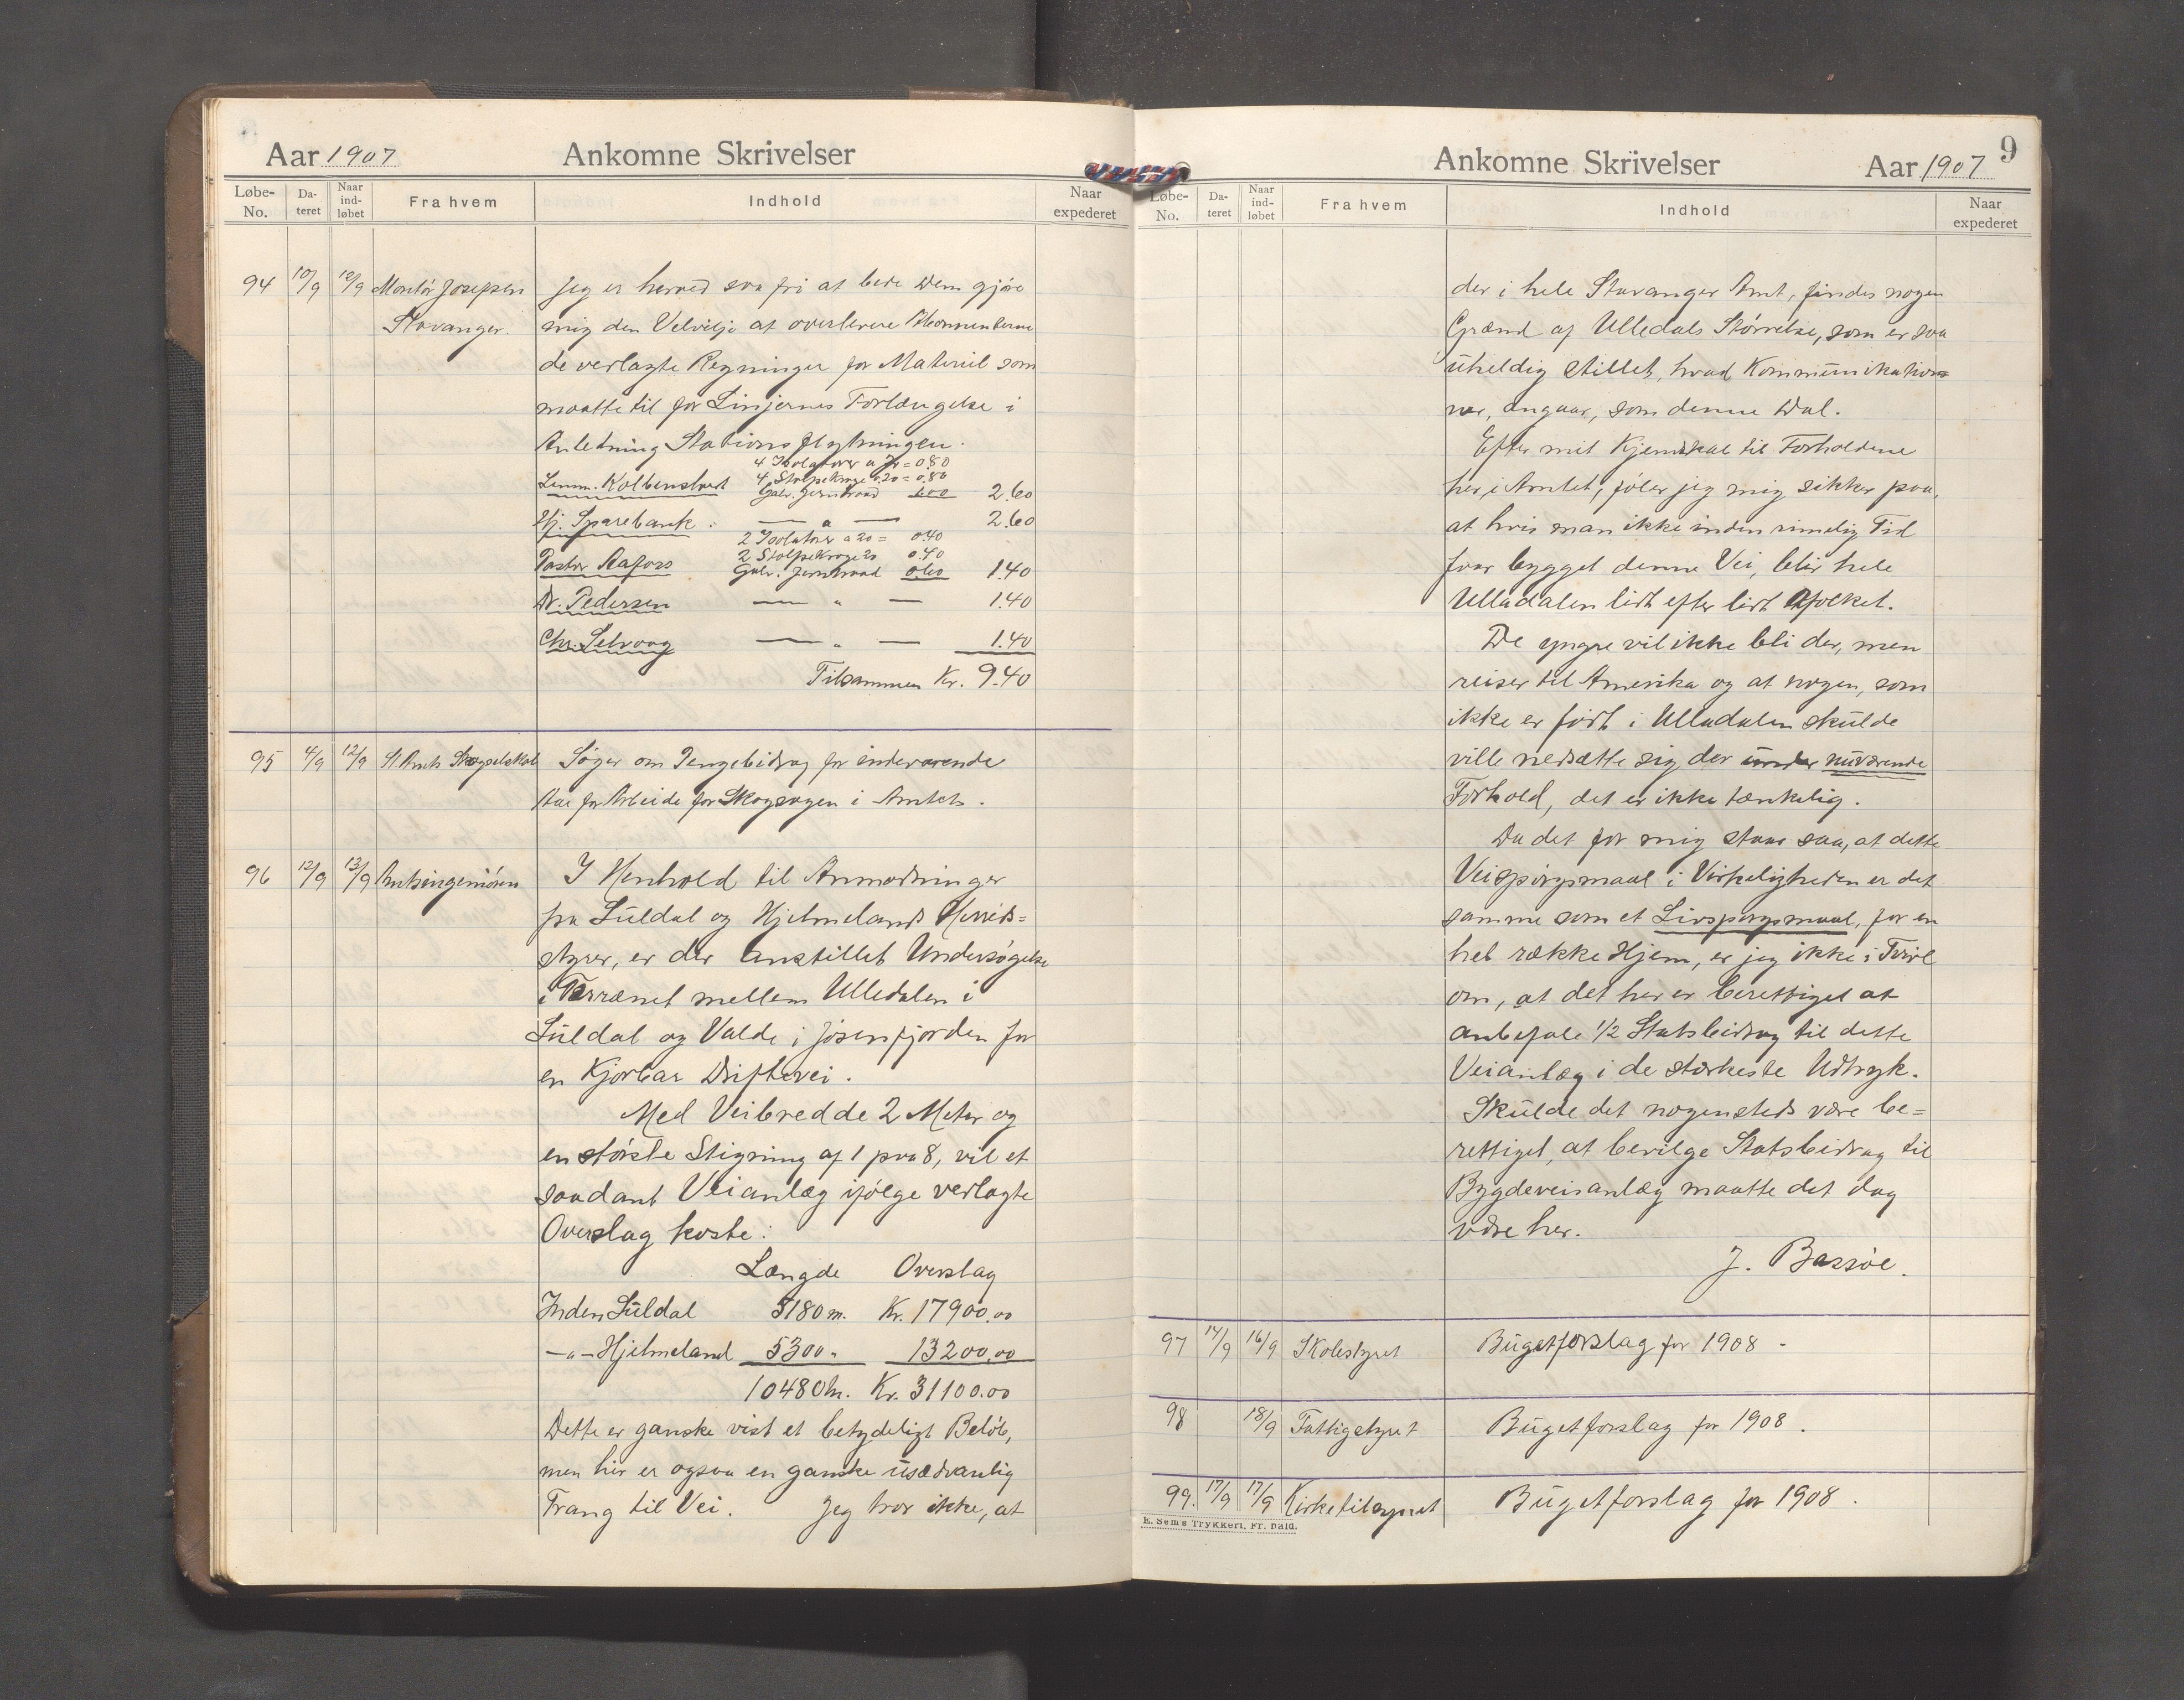 Aar 1907 Ankomne Skrivelser
Løbe-No. Dateret Naar indløbet Fra hvem Indhold Naar expederet
94 10/9 12/9 Montör Josefsen Jeg er herved saa fri at bede Dem gjøre
Stavanger. mig den Velvilje at overlevere Abonnenterne
de verlagte Regninger for Materiel som
maatte til for Linjernes Forlængelse i
Anledning Stationsflytningen.
4 Isolatorer a 20 = 0.80
Lensm. Kolbenstvedt 4 Stolpekroge a 20 = 0.80
Galv. Jerntraad 1.00 2.60
Hj. Sparebank. — " — 2.60
2 Isolatorer a 20 = 0.40
2 Stolpekroge 20 0.40
Pastor Aafors Galv. Jerntraad 0.60 1.40
Dr. Pedersen — " — 1.40
Chr. Selvaag — " — 1.40
Tilsammen Kr. 9.40
95 4/9 12/9 St. Amts Skogselskab Søger om Pengebidrag for indeværende
Aar for Arbeide for Skogsagen i Amtet.
96 12/9 13/9 Amtsingeniøren I Henhold til Anmodninger
fra Suldal og Hjelmelands Herreds=
styrer, er der anstillet Undersøgelse
i Terrænet mellem Ulledalen i
Suldal og Valde i Jøsenfjorden for
en Kjørbar Driftevei.
Med Veibredde 2 Meter og
en største Stigning af 1 paa 8, vil et
saadant Veianlæg ifølge verlagte
Overslag koste:
Længde Overslag
Inden Suldal 5180 m. Kr. 17900.00
— " — Hjelmeland 5300 " 13200.00
10480 m. Kr. 31100.00
Dette er ganske vist et betydeligt Beløb,
men her er ogsaa en ganske usædvanlig
Trang til Vei. Jeg tror ikke, at
Ankomne Skrivelser Aar 1907 9
Løbe-No. Dateret Naar indløbet Fra hvem Indhold Naar expederet
der i hele Stavanger Amt, findes nogen
Grænd af Ulledals Størrelse, som er saa
uheldig stillet, hvad Kommunikation=
ner, angaar, som denne Dal.
Efter mit Kjendskab til Forholdene
her, i Amtet, føler jeg mig sikker paa,
at hvis man ikke inden rimelig Tid
faar bygget denne Vei, blir hele
Ulladalen lidt efter lidt Affolket.
De yngre vil ikke bli der, men
reiser til Amerika og at nogen, som
ikke er født i Ulladalen skulde
ville nedsætte sig der under nuværende
Forhold, det er ikke tænkelig.
Da det for mig staar saa, at dette
Veispørgsmaal i Virkeligheden er det
samme som et Livspørgsmaal, for en
hel række Hjem, er jeg ikke i Tvivl
om, at det her er berettiget at
anbefale 1/2 Statsbidrag til dette
Veianlæg i de stærkeste Udtryk.
Skulde det nogensteds være be=
rettiget, at bevilge Statsbidrag til
Bygdeveisanlæg maatte det dog
være her.
J. Bassøe.
97 14/9 16/9 Skolestyret Bugetforslag for 1908 -
98 18/9 Fattigstyret Bugetforslag for 1908.
99. 17/9 17/9 Kirketilsynet Bugetforslag for 1908.
E. Sem's Trykkeri, Fr. hald.